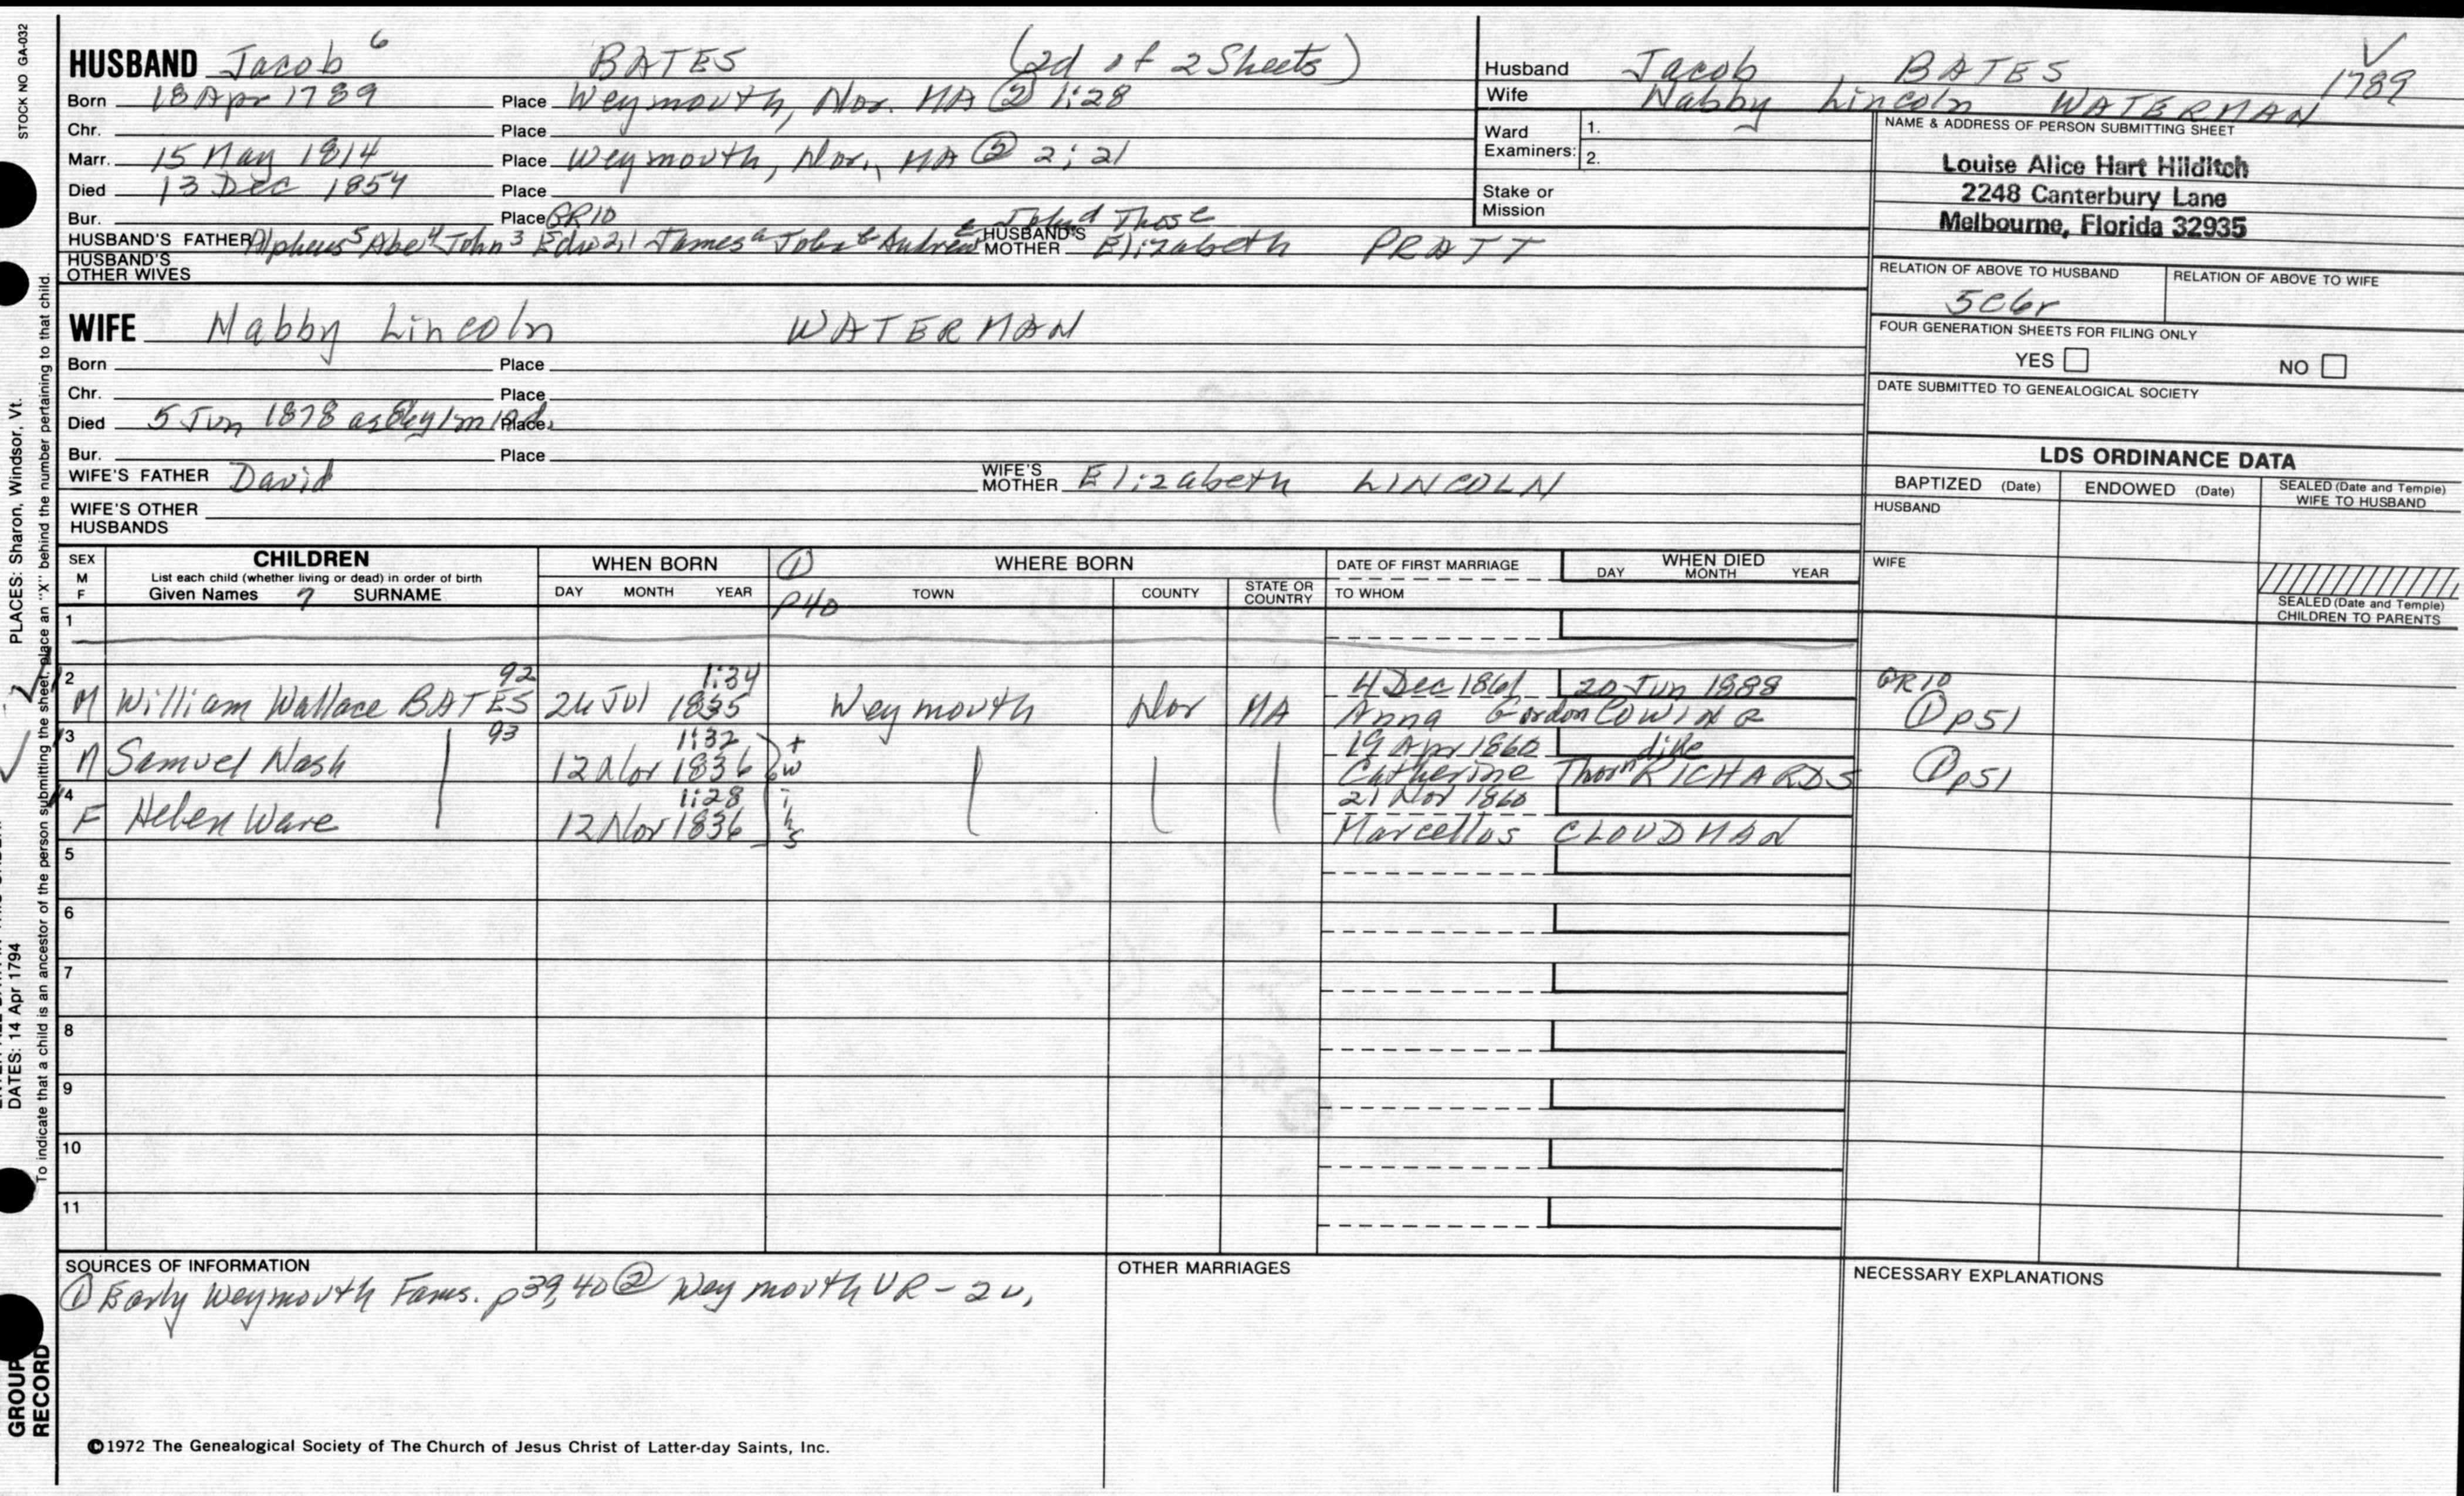 STOCK NO GA-032
HUSBAND Jacob 6 BATES (2d of 2 Sheets)
Born 18 Apr 1789 Place Weymouth, Nor. MA ② 1:28
Chr. Place
Marr. 15 May 1814 Place Weymouth, Nor., MA ② 2:21
Died 13 Dec 1854 Place
Bur. Place GR10
HUSBAND'S FATHER Alpheus 5 Abel 4 John 3 Edw 2,1 James a John b Andrew c John d Thos e HUSBAND'S MOTHER Elizabeth PRATT
HUSBAND'S OTHER WIVES
Husband Jacob BATES 1789
Wife Nabby Lincoln WATERMAN
Ward Examiners: 1.
2.
Stake or Mission
NAME & ADDRESS OF PERSON SUBMITTING SHEET
Louise Alice Hart Hilditch
2248 Canterbury Lane
Melbourne, Florida 32935
RELATION OF ABOVE TO HUSBAND RELATION OF ABOVE TO WIFE
5C6r
FOUR GENERATION SHEETS FOR FILING ONLY
YES NO
DATE SUBMITTED TO GENEALOGICAL SOCIETY
WIFE Nabby Lincoln WATERMAN
Born Place
Chr. Place
Died 5 Jun 1878 Place
Bur. Place
WIFE'S FATHER David WIFE'S MOTHER Elizabeth LINCOLN
WIFE'S OTHER HUSBANDS
LDS ORDINANCE DATA
BAPTIZED (Date) ENDOWED (Date) SEALED (Date and Temple) WIFE TO HUSBAND
HUSBAND
WIFE
SEALED (Date and Temple) CHILDREN TO PARENTS
SEX M F
CHILDREN
List each child (whether living or dead) in order of birth
Given Names 7 SURNAME
WHEN BORN
DAY MONTH YEAR
① p40
WHERE BORN
TOWN COUNTY STATE OR COUNTRY
DATE OF FIRST MARRIAGE
TO WHOM
WHEN DIED
DAY MONTH YEAR
1
2 92 1:34 4 Dec 1861 20 Jun 1888 GR10
M William Wallace BATES 24 Jul 1835 Weymouth Nor MA Anna Gordon COWING ① p51
3 93 1:32 19 Apr 1860
M Samuel Nash 12 Nov 1836 Catherine Thorn RICHARDS ① p51
4 1:28 21 Nov 1860
F Helen Ware 12 Nov 1836 twins Marcellos CLOUDMAN
5
6
7
8
9
10
11
SOURCES OF INFORMATION
① Early Weymouth Fams. p39,40 ② Weymouth VR - 2v,
OTHER MARRIAGES
NECESSARY EXPLANATIONS
©1972 The Genealogical Society of The Church of Jesus Christ of Latter-day Saints, Inc.
PLACES: Sharon, Windsor, Vt.
DATES: 14 Apr 1794
To indicate that a child is an ancestor of the person submitting the sheet, place an "X" behind the number pertaining to that child.
GROUP RECORD